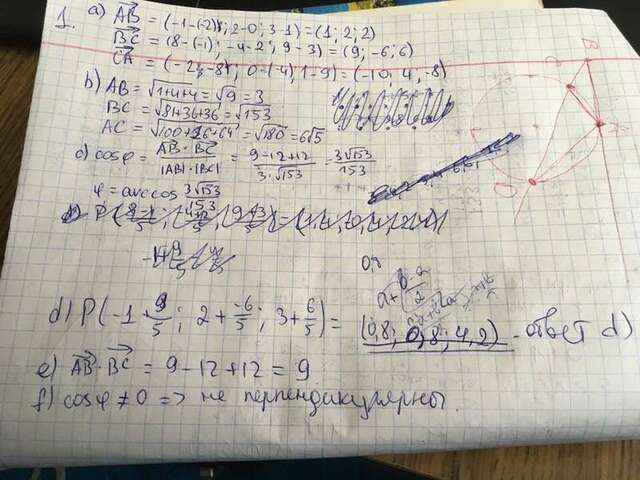 1. a) AB = (-1-(-2); 2-0; 3-1) = (1; 2; 2)
BC = (8-(-1); -4-2; 9-3) = (9; -6; 6)
CA = (-2-8; 0-(-4); 1-9) = (-10; 4; -8)
b) AB = √1+4+4 = √9 = 3
BC = √81+36+36 = √153
AC = √100+16+64 = √180 = 6√5
c) cosφ = AB · BC / |AB| · |BC| = 9-12+12 / 3·√153 = 3√153 / 153
φ = arccos 3√153 / 153
d) P(-1+9/5; 2+-6/5; 3+6/5) =
(0,8; 0,8; 4,2) - ответ d)
e) AB·BC = 9-12+12 = 9
f) cosφ ≠ 0 => не перпендикулярны.
B
C
A